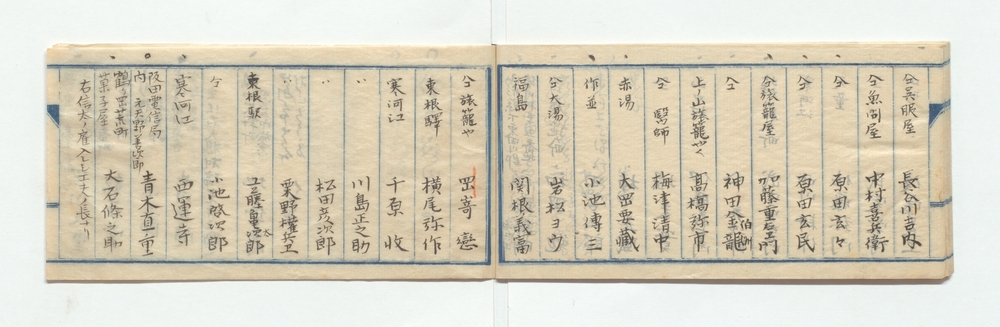 仝呉服屋 長谷川吉内
仝魚問屋 中村喜兵衛
仝 原田玄々
仝 原田玄民
仝旅籠屋 加藤重右衛門
仝 神田金龍 伯州
上ノ山旅籠や 髙橋弥市
仝 醫師 梅津清中
赤湯 大田要藏
作並 小池傳三
仝大湯 岩松ヨウ
福島 関根義富
仝旅籠や
東根驛 横尾弥作
寒河江 千原 收
〃 川島正之助
〃 松田彦次郎
栗野權兵衛
東根駅 工藤亀次郎
仝 小池啓次郎
寒河江 西運寺
酒田電信局内 青木直重
元天野善次郎
鶴ヶ岡荒町菓子屋 大石條之助